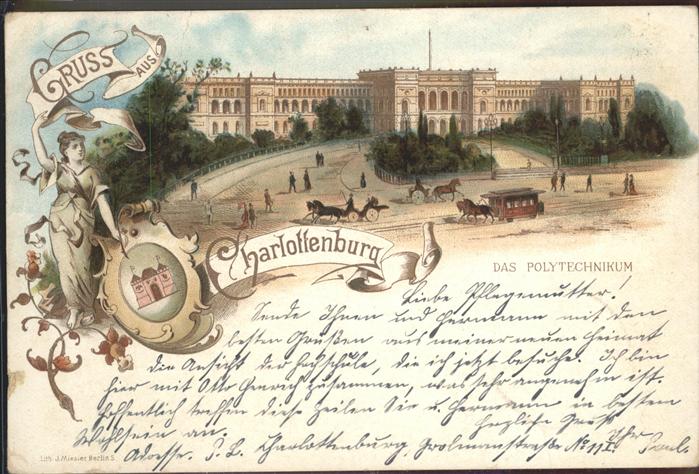 GRUSS AUS
Charlottenburg
DAS POLYTECHNIKUM
Liebe Pflegemutter!
Sende Ihnen und Hermann mit den
besten Grüßen aus meiner neuen Heimat
die Ansicht der Hochschule, die ich jetzt besuche. Ich bin
hier mit Otto zusammen, was sehr angenehm ist.
Hoffentlich treffen diese Zeilen Sie u. Hermann in besten
Wohlsein an. Herzliche Gruß
Ihr
Adresse. P. L. Charlottenburg, Grolmannstraße No 11 I. Paul.
Lith. J. Miesler Berlin S.